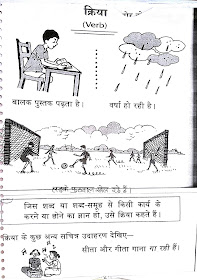 क्रिया
(Verb)
बालक पुस्तक पढ़ता है।
वर्षा हो रही है।
लड़के फुटबाल खेल रहे हैं।
जिस शब्द या शब्द-समूह से किसी कार्य के
करने या होने का ज्ञान हो, उसे क्रिया कहते हैं।
क्रिया के कुछ अन्य सचित्र उदाहरण देखिए–
सीता और गीता गाना गा रही हैं।